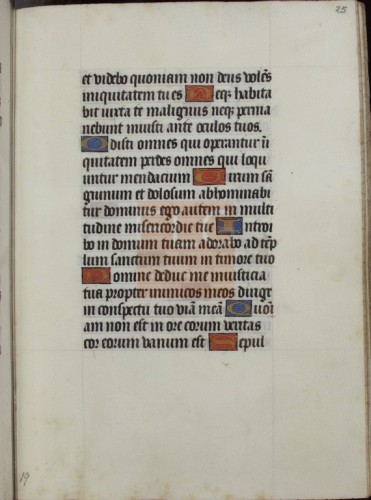 25
et videbo quoniam non deus volēs
iniquitatem tu es Neqȝ habita
bit iuxta te malignus neqȝ perma
nebunt iniusti ante oculos tuos.
Odisti omnes qui operantur ī
quitatem perdes omnes qui loqu
untur mendacium Uirum sā
gnunum et dolosum abhominabi
tur dominus ego autem in multi
tudine misericordie tue Introi
bo in domum tuam adorabo ad tēp
lum sanctum tuum in timore tuo
Domine deduc me iniusticia
tua propter inimicos meos dirige
in conspectu tuo viam meā Quoni
am non est in ore eorum veritas
cor eorum vanum est Sepul
19